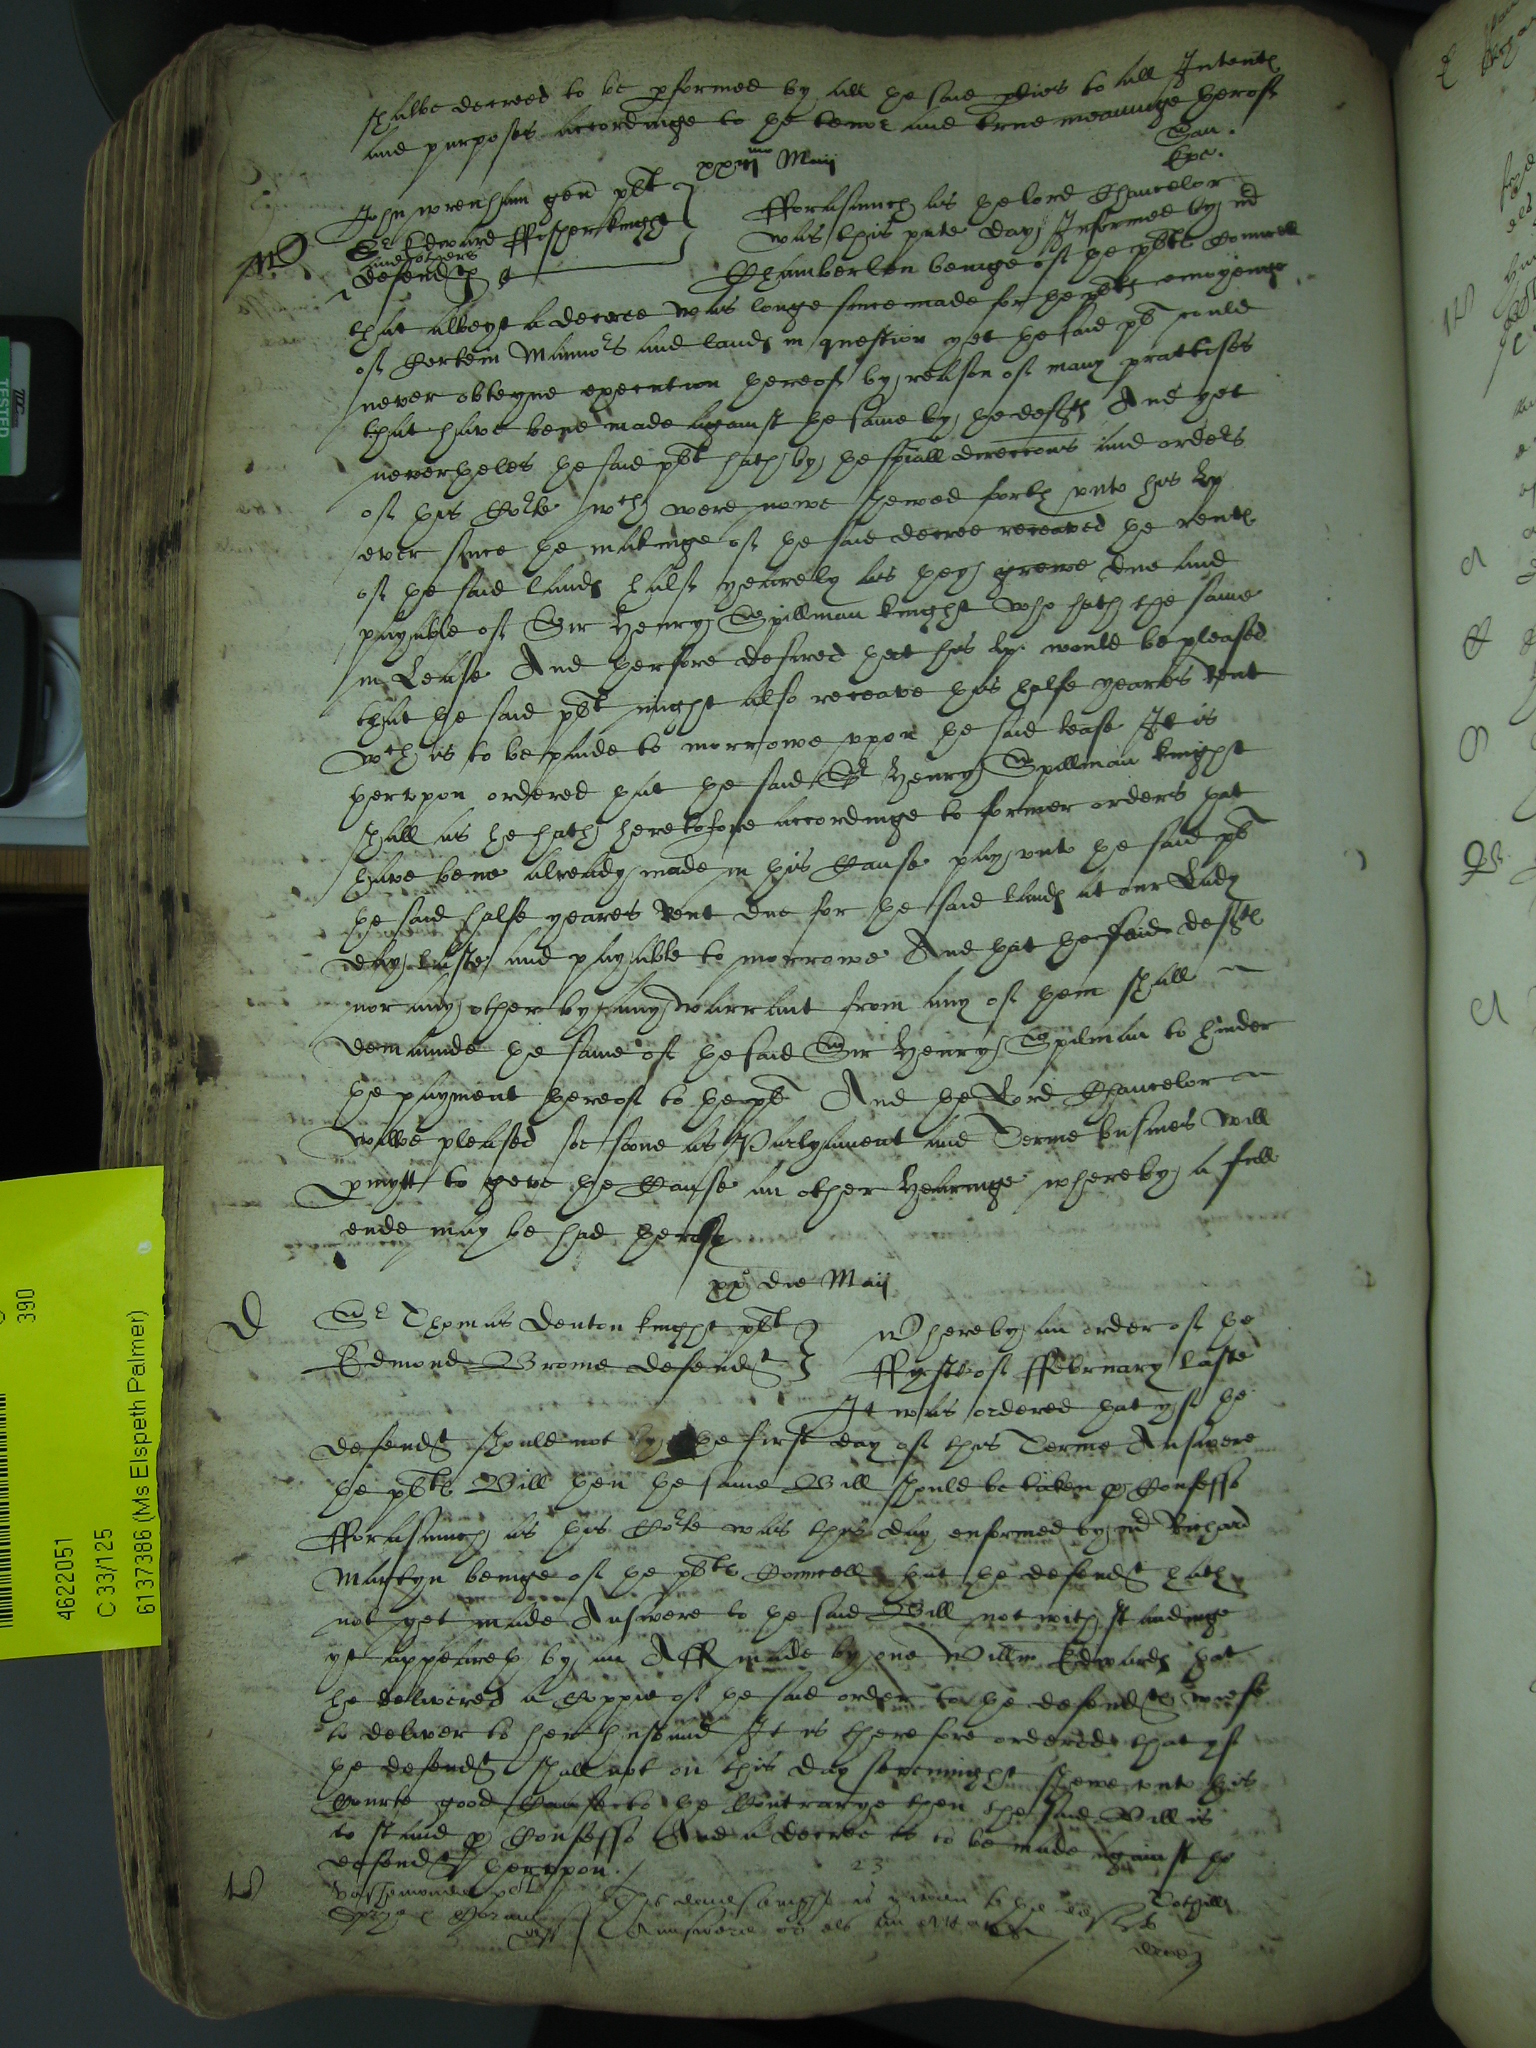 shalbe decreed to be pformed by all the said pties to all Intentes
and purposes accordinge to the tenor and true meaninge therof
San.
Exr.
xxiiimo Maij
John Wrenham gen plt
Sr Edward Ffisher knight
and others
defendtes
Fforasmuch as the lord Chancelor
was this pnte day Informed by mr
Chamberlen beinge of the pltes Councell
that albeyt a decree was longe since made for the pltes enioyenge
of Certein Mannors and landes in question yet the said plt could
never obteyne execution thereof by reason of many practises
that have bene made against the same by the deftes And yet
neverthelès the said plt hath by the speciall direccons and orders
of this Corte wch were nowe shewed forth vnto his Lp
ever since the makinge of the said decree receaved the rentes
of the said landes halfe yearely as they grewe due and
payable of Sir Henry Spillman knight who hath the same
in Lease And therfore desired that his Lp. would be pleased
that the said plt might also receave this halfe yeares Rent
wch is to be paide to morrowe vpon the said lease It is
thervpon ordered that the said Sr Henry Spillman knight
shall as he hath heretofore accordinge to former orders that
have bene already made in this Cause pay vnto the said plt
the said halfe yeares Rent due for the said landes at our Lady
day laste and payable to morrowe And that the said deftes
nor any other by any warrant from any of them shall
demaunde the same of the said Sir Henry Spilman to hinder
the payment thereof to the plt And the Lord Chancelor
wilbe pleased soe soone as Parlyament and Terme busines will
pmytt to geve the Cause an other Hearinge whereby a full
ende may be had therof
xxo die Maij
D
Sr Thomas Denton knight plt
Edmond Brome defendt
Whereby an order of the
ffyrste of Ffebruary laste
It was ordered that yf the
defendt should not by the first day of this Terme Answere
the pltes Bill then the same Bill should be taken p Confesso
Fforasmuch as this Corte was this day enformed by mr Richard
Martyn beinge of the pltes Councell that the defendt hath
not yet made Answere to the said Bill not with standinge
yt appeareth by an Aff made by one Willm Edwardes that
he delivered a Coppie of the said order to the defendtes wiefe
to deliver to her husband It is therefore ordered that yf
the defendt shall not on this day sevennight shewe vnto this
Courte good Cause to the Contrarye then the said Bill is
to stand p Confesso And a decree is to be made against the
defendt thervpon./
23
4622051
C 33/125
6137386 (Ms Elspeth Palmer)
390
TESTED